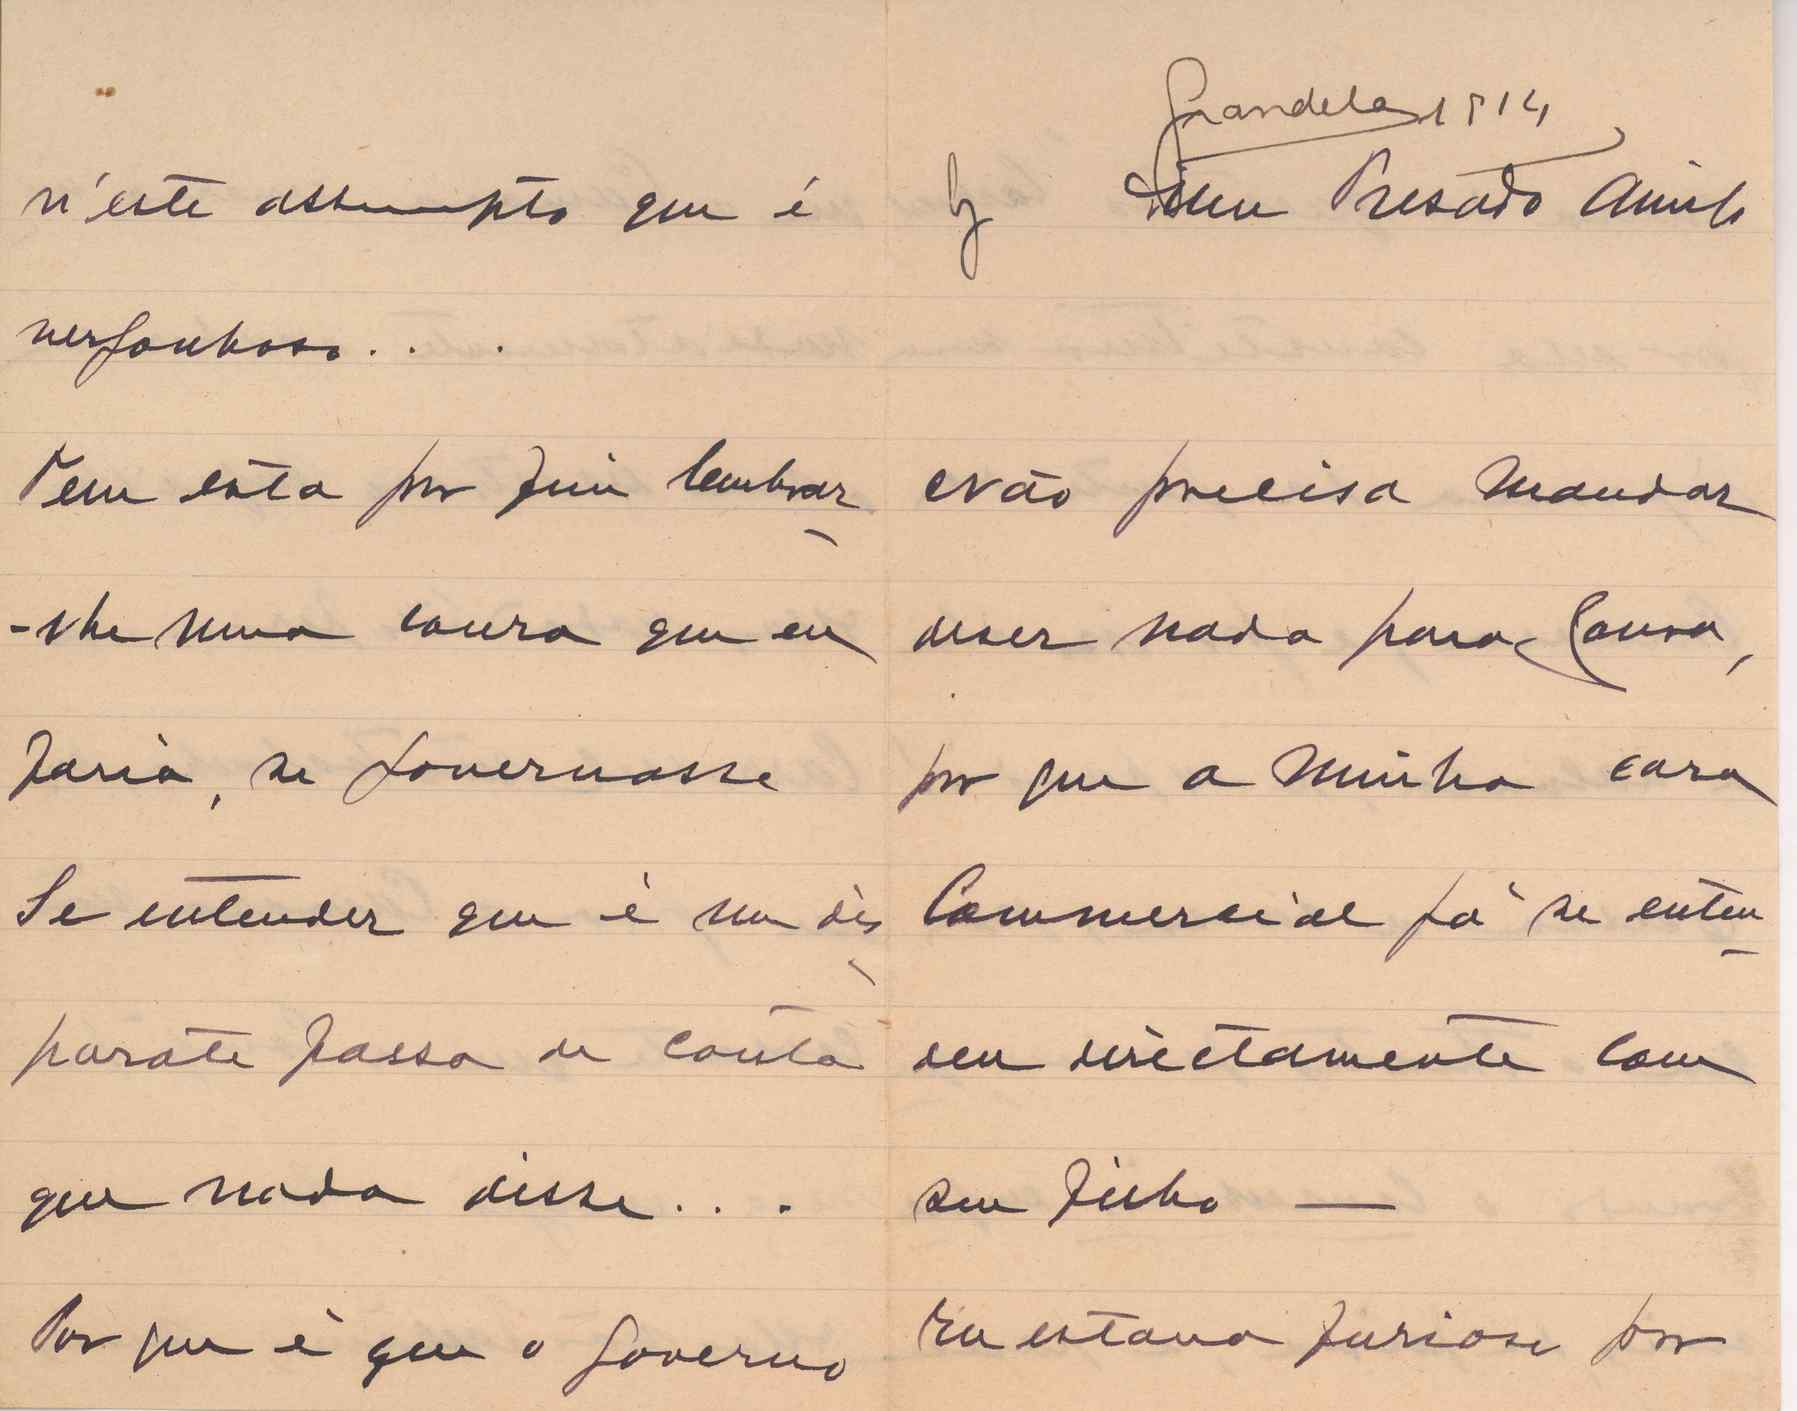 Grandela 1914
Meu Presado Amigo
Não precisa mandar
diser nada para Lousa,
por que a minha casa
Commercial já se enten
deu directamente com
seu filho —
Eu estava furioso por
n'este assumpto que é
vergonhoso...
Vem esta por fim lembrar
-lhe uma cousa que eu
faria, se governasse
Se entender que é um dis
parate fassa de conta
que nada disse...
Por que é que o governo